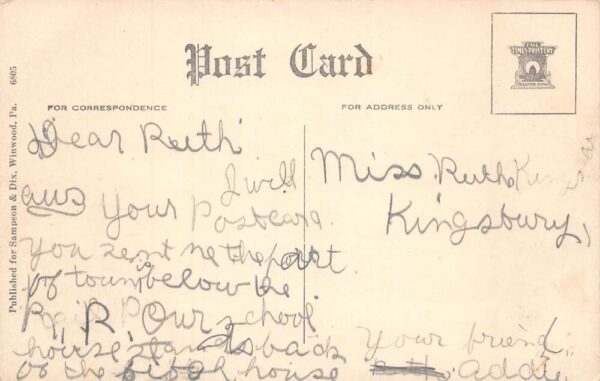 Post Card
FOR CORRESPONDENCE
FOR ADDRESS ONLY
Published for Sampson & Dix, Winwood, Pa. 6805
THE TIMES PRINTERY
Dear Ruth
I will
ans Your Postcard
You sent me the part
of town is below the
R. R. Our school
house stands back
of the house
Miss Ruth Kings
Kingsbury,
Your friend,
Addie